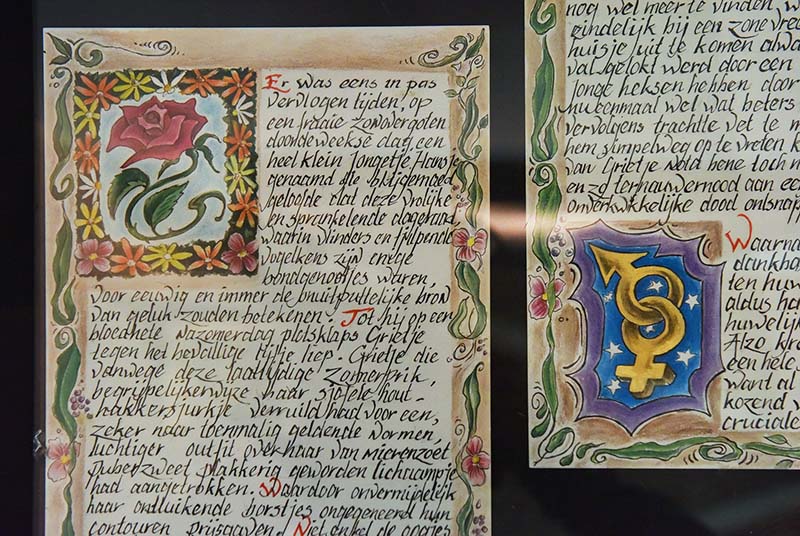 Er was eens in pas
vervlogen tijden, op
een fraaie zonovergoten
doordeweekse dag, een
heel klein jongetje Hansje
genaamd die blijgemoed
geloofde dat deze vrolijke
en sprankelende dageraad,
waarin vlinders en fluitende
vogelkens zijn enige
bondgenootjes waren,
voor eeuwig en immer de onuitputtelijke bron
van geluk zouden betekenen. Tot hij op een
bloedhete nazomerdag plotsklaps Grietje
tegen het bevallige lijfje liep. Grietje die
vanwege deze laattijdige zomerprik,
begrijpelijkerwijze haar sjofele hout-
hakkersjurkje verruild had voor een,
zeker naar toenmalig geldende normen,
luchtiger outfit over haar van mierenzoet
puberzweet plakkerig geworden lichaampje
had aangetrokken. Waardoor onvermijdelijk
haar ontluikende borstjes ongegeneerd hun
contouren prijsgaven. Niet enkel de oogjes
nog wel meer te vinden, w
eindelijk bij een zone vree
huisje uit te komen alwa
val gelokt werd door een
jonge heksen hebben door
nu eenmaal wel wat beters
vervolgens trachtte vet te m
hem simpelweg op te vreten k
van Grietje nota bene toch n
en zo ternauwernood aan een
onverkwikkelijke dood ontsnap
Waarna
dankba
ten huw
aldus ha
huwelijk
Alzo kra
een hele
want al
kozend v
cruciale